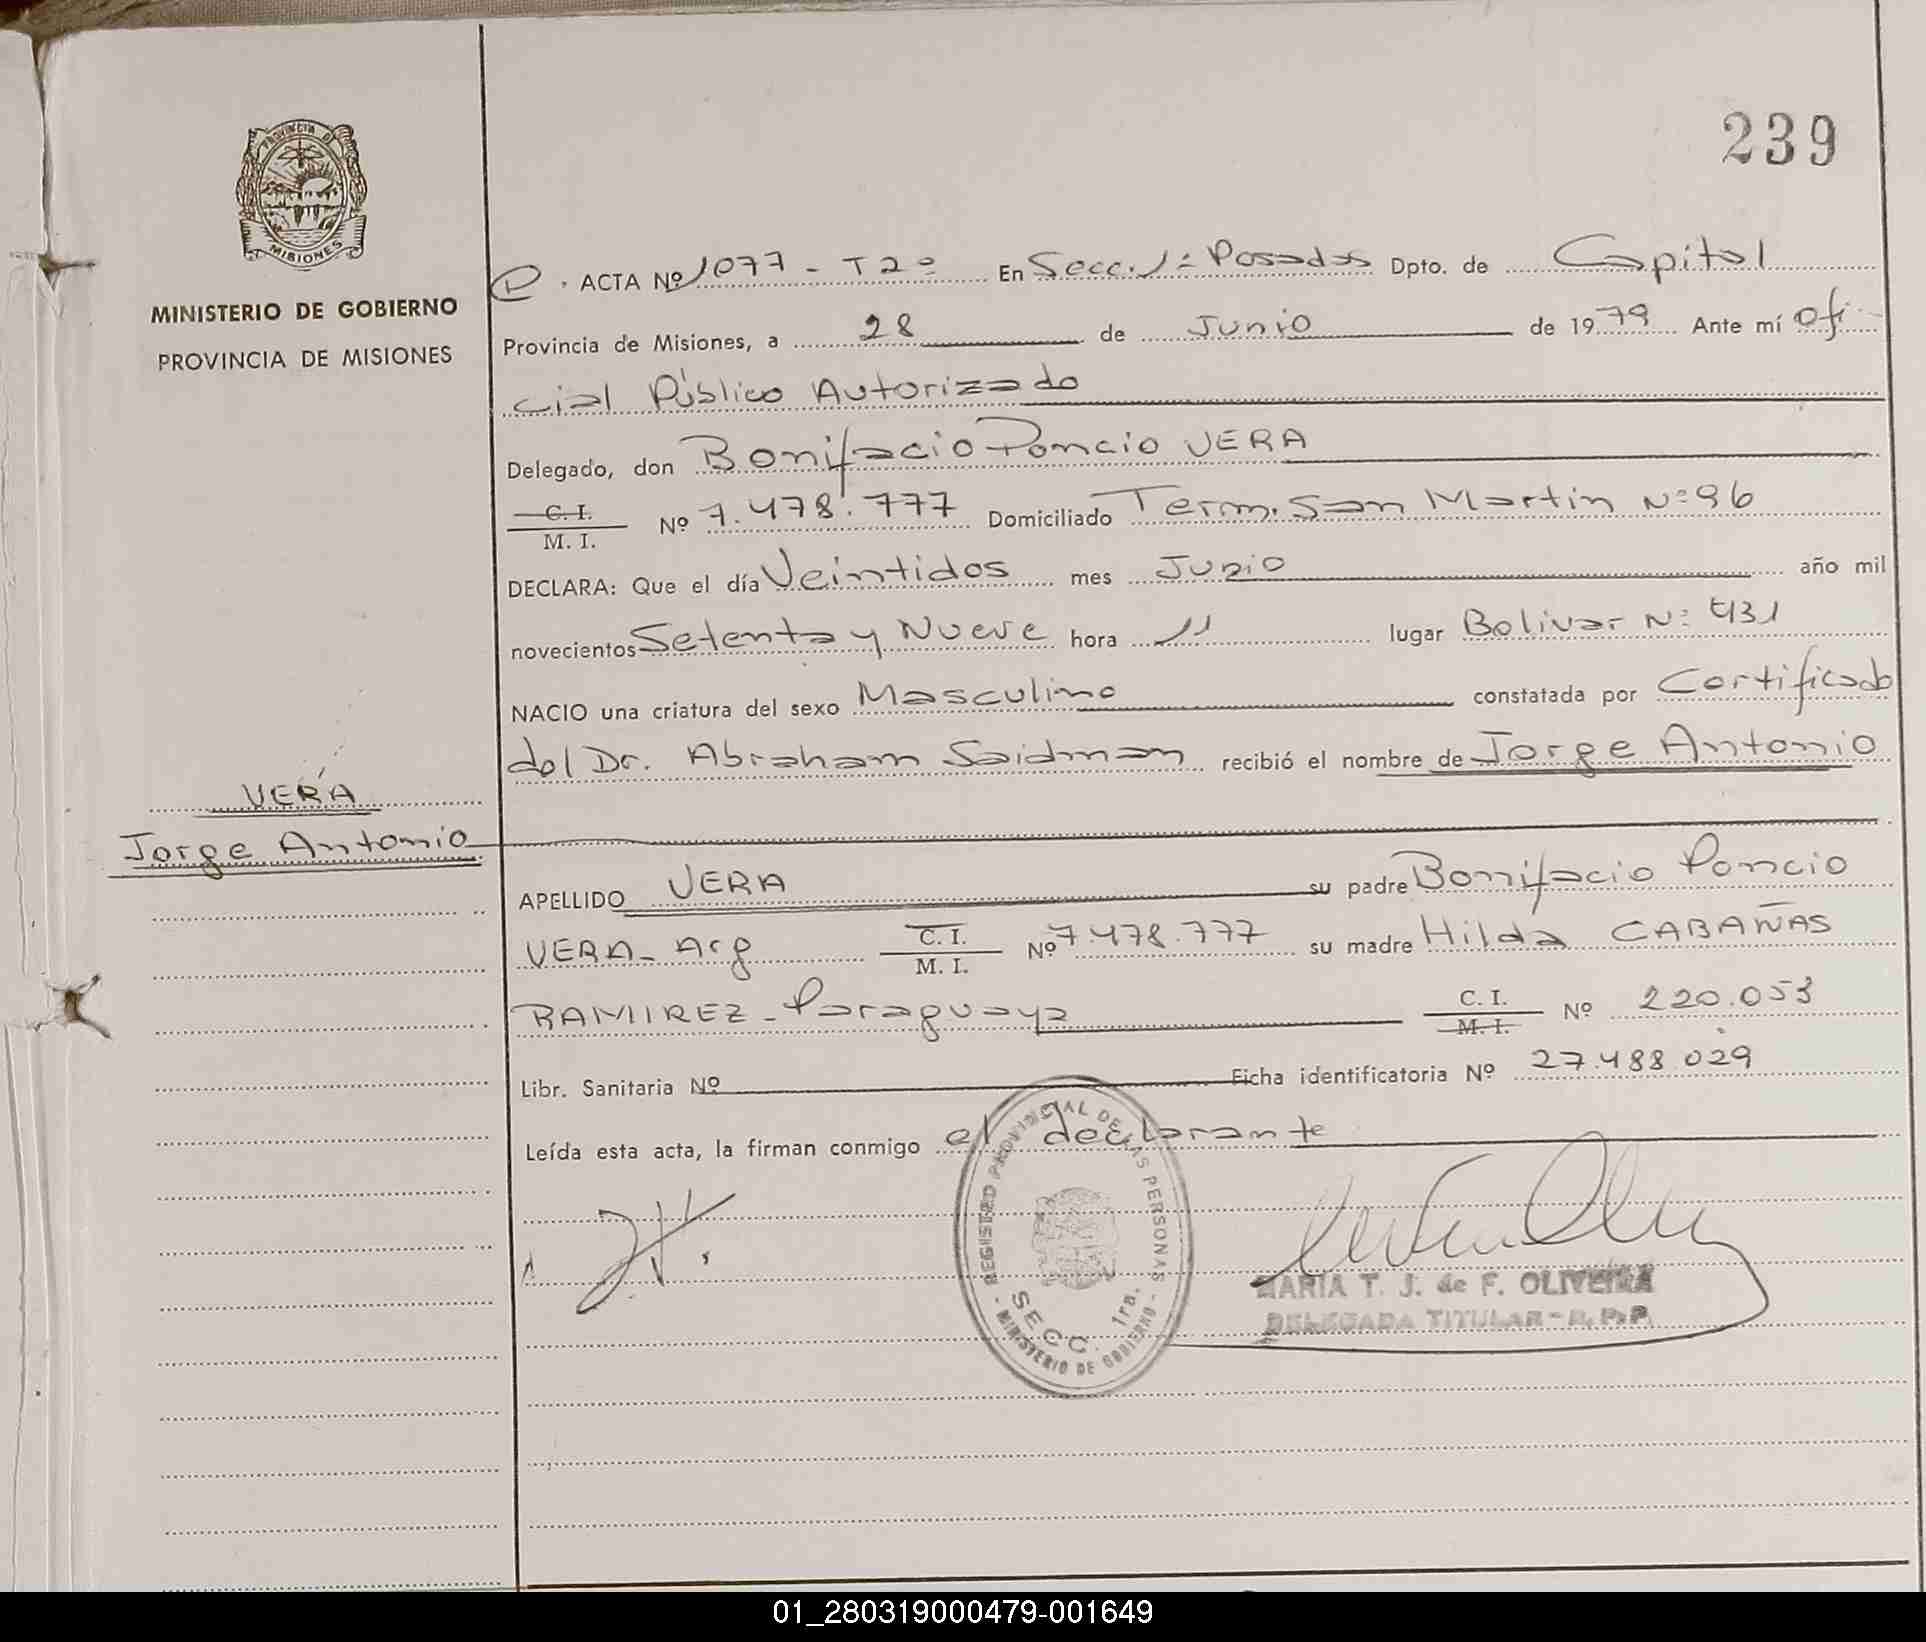 239
PROVINCIA DE
MISIONES
MINISTERIO DE GOBIERNO
PROVINCIA DE MISIONES
ACTA Nº 1077 - T2º En Secc. 1ª Posadas Dpto. de Capital
Provincia de Misiones, a 28 de Junio de 1979 Ante mí Ofi-
cial Público Autorizado
Delegado, don Bonifacio Poncio VERA
C. I.
M. I. Nº 7.478.777 Domiciliado Term. San Martin Nº 96
DECLARA: Que el día Veintidos mes Junio año mil
novecientos Setenta y Nueve hora 11 lugar Bolivar Nº 431
NACIO una criatura del sexo Masculino constatada por Certificado
del Dr. Abraham Saidman recibió el nombre de Jorge Antonio
VERA
Jorge Antonio
APELLIDO VERA su padre Bonifacio Poncio
VERA - Arg C. I.
M. I. Nº 7.478.777 su madre Hilda CABAÑAS
RAMIREZ - Paraguaya C. I.
M. I. Nº 220.053
Libr. Sanitaria Nº Ficha identificatoria Nº 27.488.029
Leída esta acta, la firman conmigo el declarante
REGISTRO PROVINCIAL DE LAS PERSONAS
SECC. 1ra.
MINISTERIO DE GOBIERNO
MARIA T. J. de F. OLIVEIRA
DELEGADA TITULAR - R. P. P.
01_280319000479-001649